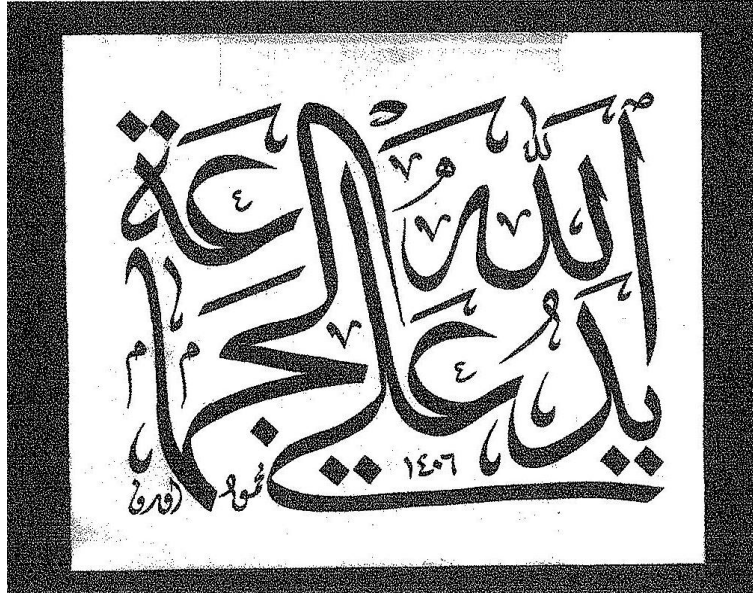 يد الله على الجماعة
١٤٠٦
محمود